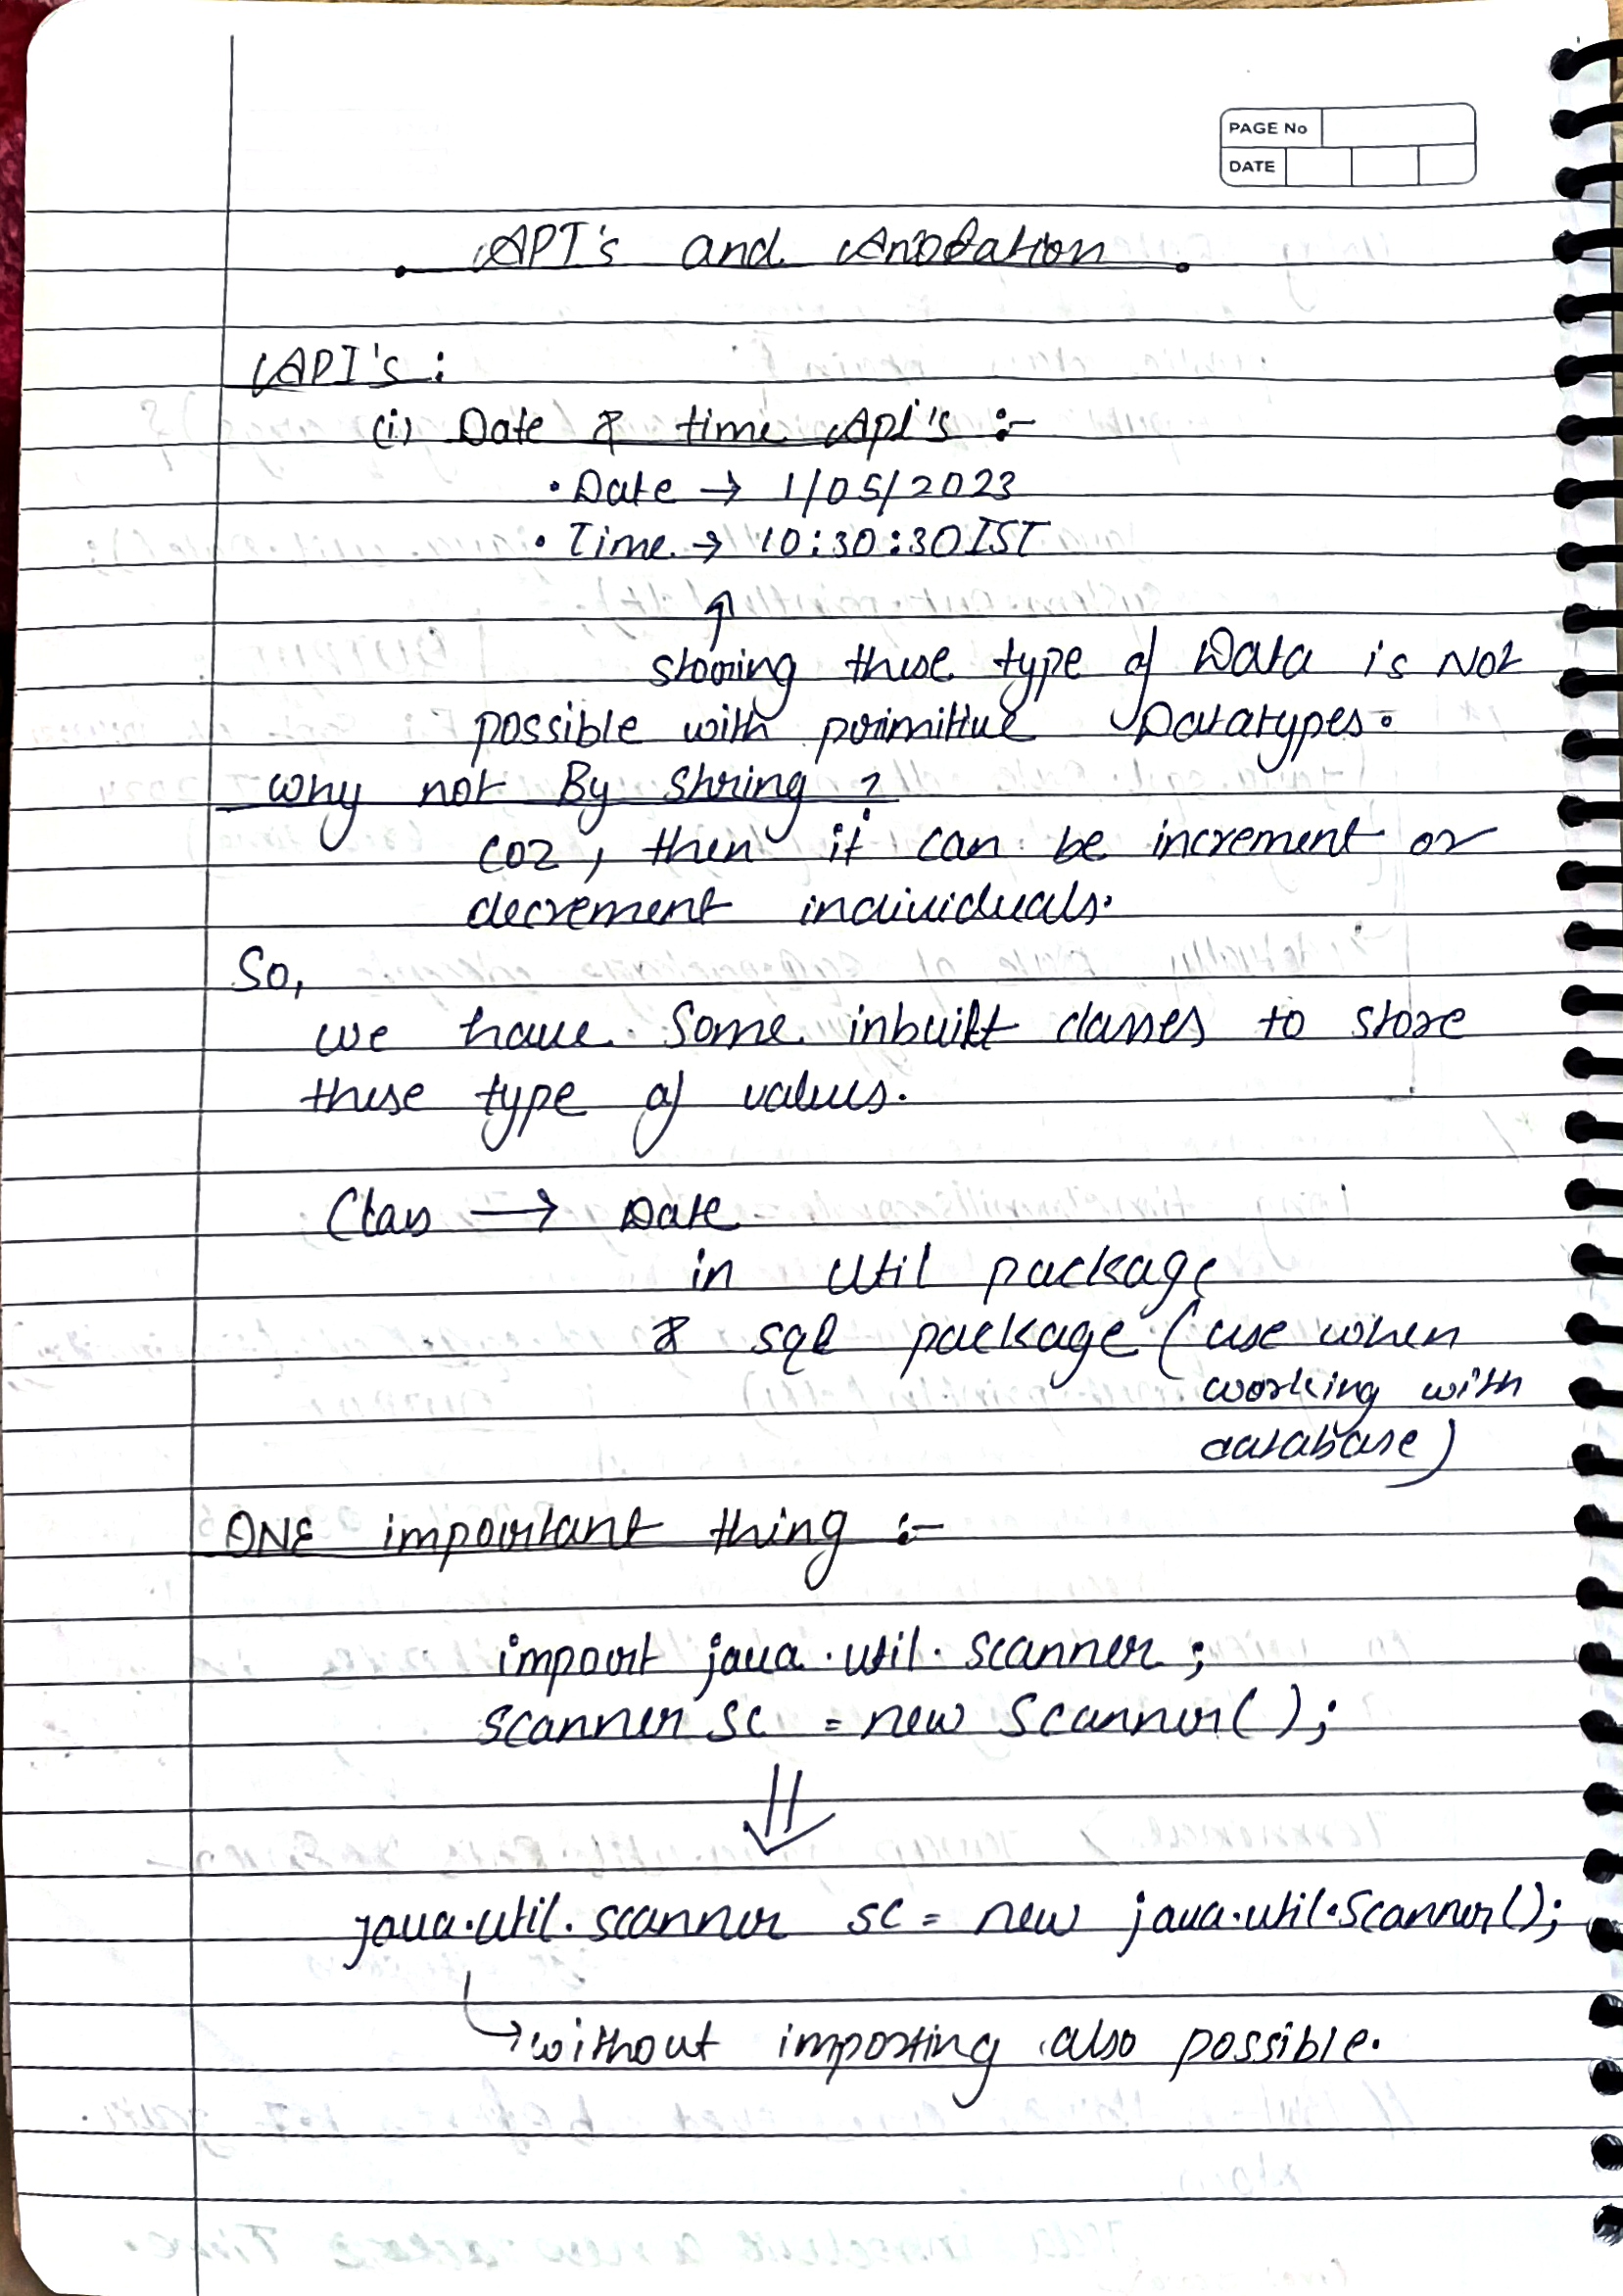 PAGE No
DATE
API's and Anotation
API's :
(i) Date & time Api's :-
• Date → 1/05/2023
• Time → 10:30:30 IST
↑
storing these type of Data is Not
possible with primitive Datatypes.
why not By String ?
coz, then it can be increment or
decrement individuals.
So,
we have some inbuilt classes to store
these type of values.
Class → Date
in util package
& sql package (use when
working with
database)
ONE important thing :-
import java.util.scanner ;
scanner sc = new Scanner( );
⇓
java.util.scanner sc = new java.util.Scanner();
↳ without importing also possible.